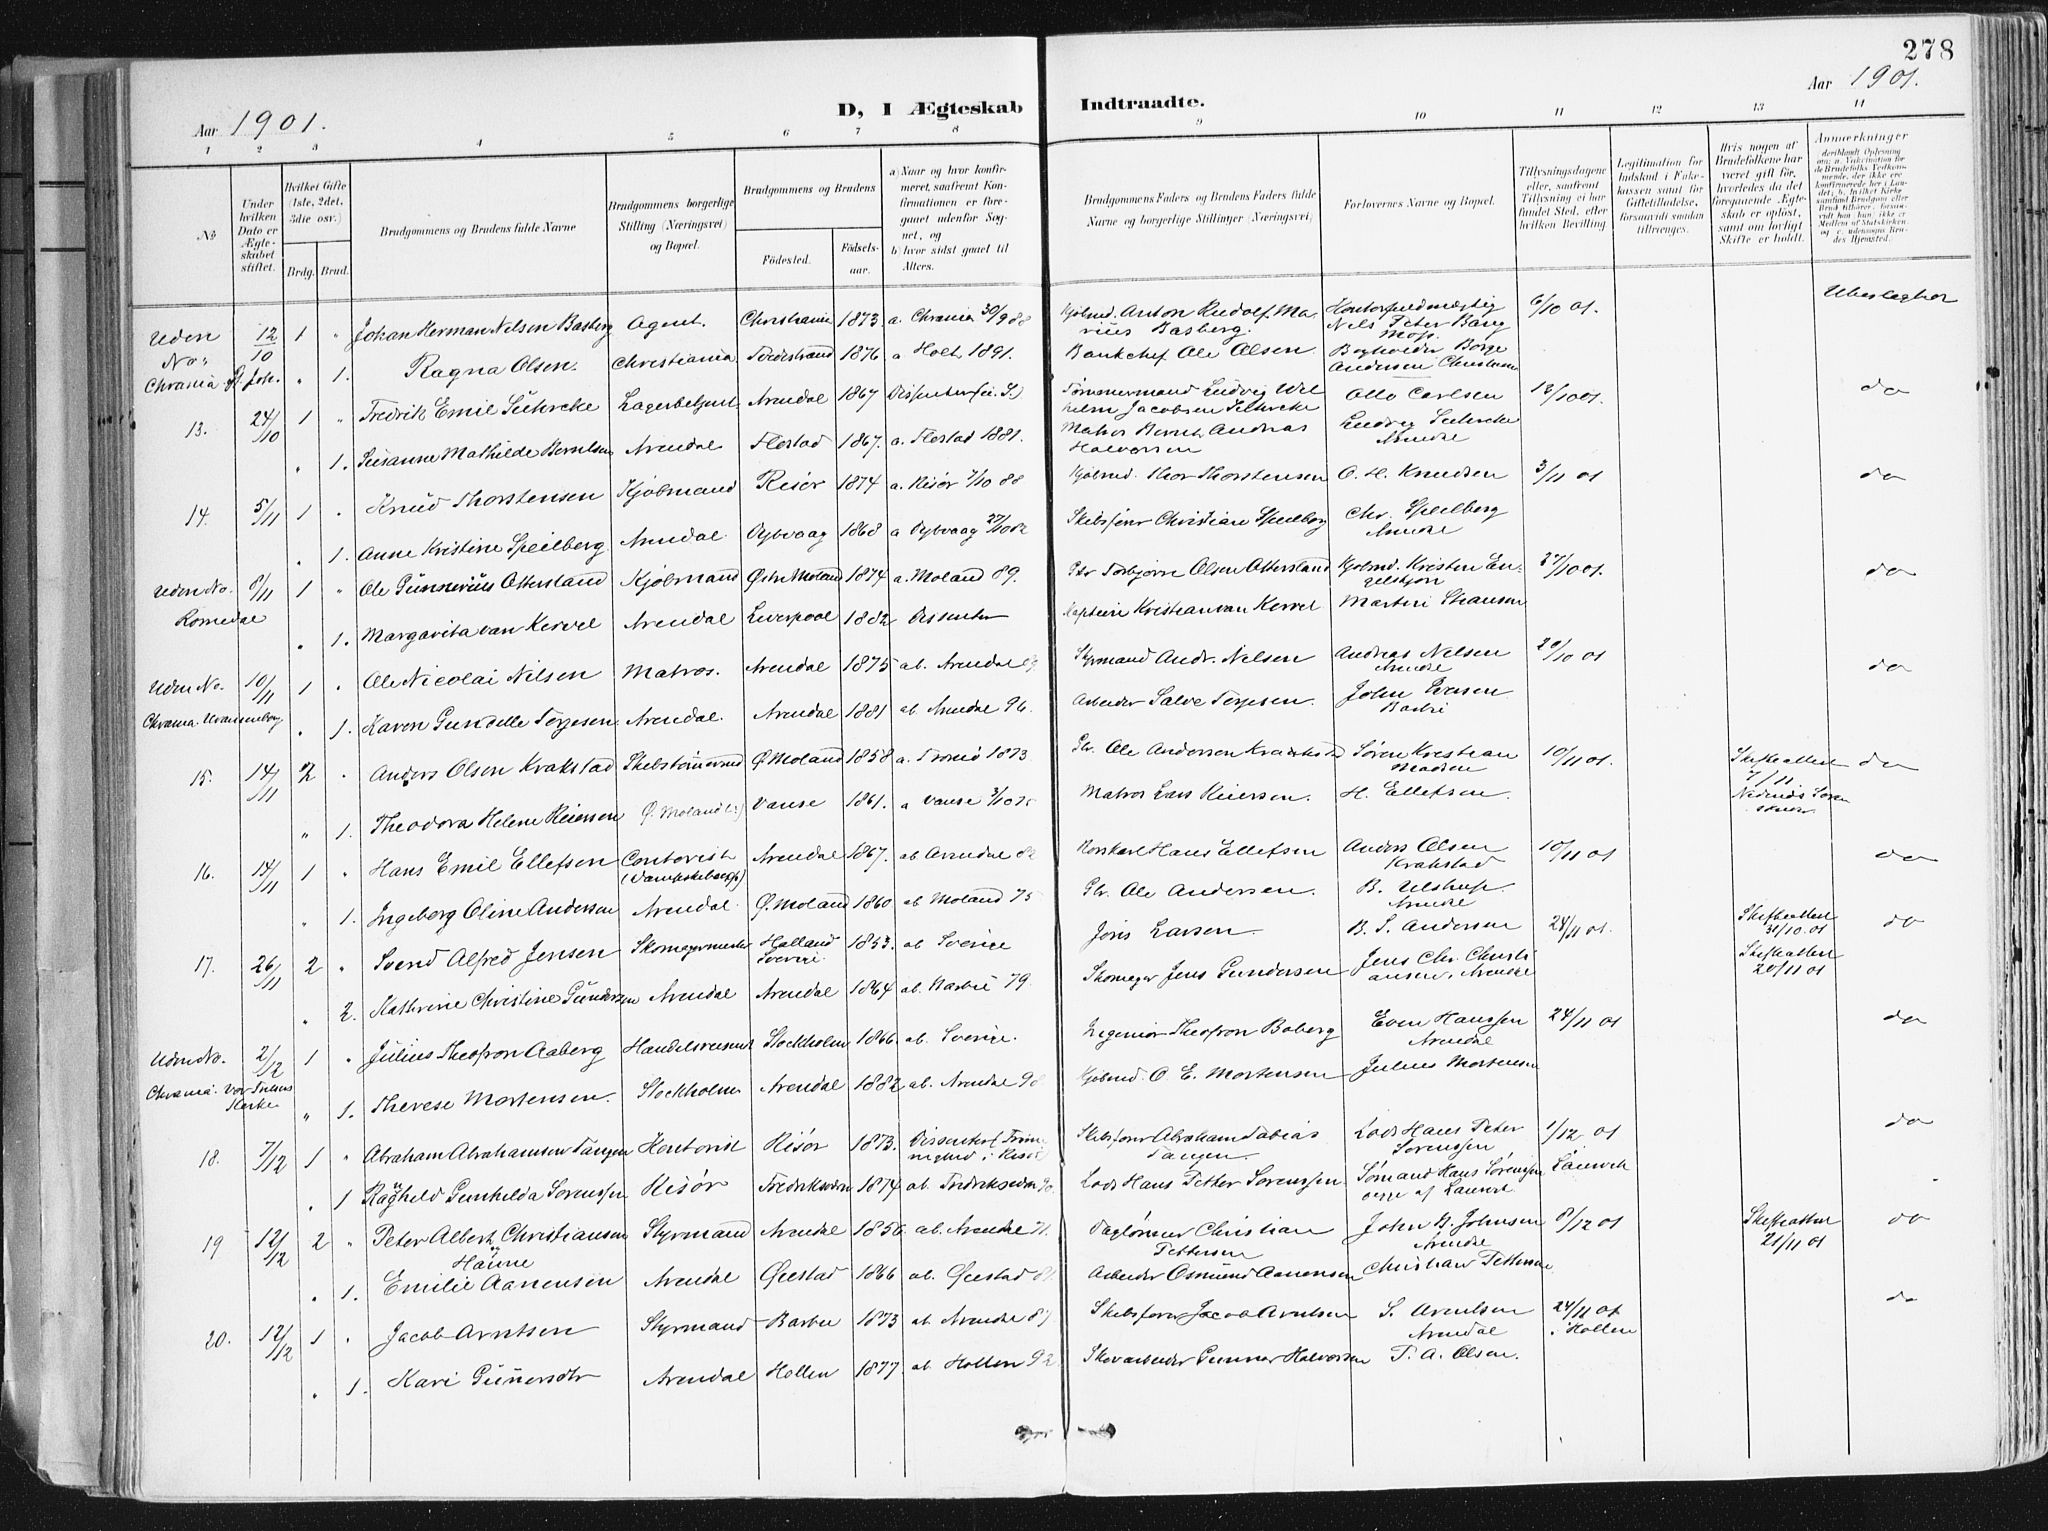 278
Aar 1901.
D, I Ægteskab Indtraadte.
Aar 1901.
1 2 3 4 5 6 7 8 9 10 11 12 13 14
No
Under hvilken Dato er Ægteskabet stiftet.
Hvilket Gifte (1ste, 2det, 3die osv.)
Brdg. Brud.
Brudgommens og Brudens fulde Navne
Brudgommens borgerlige Stilling (Næringsvei) og Bopæl.
Brudgommens og Brudens
Fødested. Fødselsaar.
a) Naar og hvor konfirmeret, saafremt Konfirmationen er foregaaet udenfor Sognet, og
b) hvor sidst gaaet til Alters.
Brudgommens Faders og Brudens Faders fulde Navne og borgerlige Stillinger (Næringsvei)
Forlovernes Navne og Bopæl.
Tillysningsdagene eller, saafremt Tillysning ei har fundet Sted, efter hvilken Bevilling.
Legitimation for Indskud i Enkekassen samt for Giftetilladelse, forsaavidt saadan tiltrænges.
Hvis nogen af Brudefolkene har været gift før, hvorledes da det foregaaende Ægteskab er opløst, samt om lovligt Skifte er holdt.
Anmærkninger
Uden No. 12/10 1 " Johan Herman Nelson Basberg Agent. Christiania 1873 a. Chrania 30/9 88 Kjøbmd. Anton Rudolf Marius Basberg. Kontorfuldmægtig Nils Peter Bang Moss. 6/10 01. Ubeslægtet
Chrania St. Joh. " 1. Ragna Olsen. Christiania Tvedestrand 1876 a Holt 1891. Bankchef Ole Olsen Bogholder Borge Andersen Christiania
13. 24/10 1 " Fredrik Emil Sühreke Lagerbetjent Arendal 1867 Tømmermand Ludvig Wilhelm Jacobsen Otto Carlsen 13/10 01. do
" 1. Susanne Mathilde Berntsen Arendal Flostad 1867. a. Flostad 1881. Matros Bernt Andreas Halvorsen Ludvig Arendal
14. 5/11 1 " Knud Thorstensen Kjøbmand Risør 1874 a. Risør 7/10 88 Kjøbmd. Thor Thorstensen O. H. Knudsen 3/11 01 do
" 1. Anne Kristine Speilberg Arendal Dybvaag 1868 a Dybvaag Skibsfører Christian Speilberg Chr. Speilberg Arendal
Uden No. 8/11 1 " Ole Gunnerius Otterstand Kjøbmand Østre Moland 1874 a. Moland 89. Torbjørn Olsen Otterstand Kjøbmd. Kristen 27/10 01. do
Romedal " 1. Margarita van Kervel Arendal Liverpool 1882 Dissenter Kaptein Kristian van Kervel Martin
Uden No. 10/11 1 " Ole Nicolai Nilsen Matros. Arendal 1875 ab. Arendal Styrmand Andr. Nelsen Andreas Nelsen Arendal 20/10 01 do
Chrania. Uranienborg " 1. Karen Gundelle Torjesen Arendal. Arendal 1881 ab. Arendal 96. Arbeider Salve Torjesen. John Barbu
15. 14/11 2 " Anders Olsen Krakstad Skibstømmermd Ø. Moland 1858 a. Tromø 1873 Ole Andersen Krakstad Søren Kristian Madsen 10/11 01. Skifteattest 7/11 Nedenæs Soren skriver do
" 1. Theodora Helene Reiersen (Ø. Moland) Vanse 1861. a Vanse Matros Lars Reiersen. H. Ellefsen.
16. 14/11 1 " Hans Emil Ellefsen Contorist (Dampskibsexp) Arendal 1867. ab Arendal 82 Hans Ellefsen Anders Olsen Krakstad 10/11 01 do
" 1. Ingeborg Oline Andersen Arendal. Ø. Moland 1860 ab Moland 75 Ole Andersen. B. Ulstrup. Arendal
17. 26/11 2 " Svend Alfred Jensen Skomagermester Halland Sverige. 1853. ab Sverige Jøns Larsen B. S. Andersen 24/11 01. Skifteattest 31/10.01 do
" 2. Kathrine Christine Gundersen Arendal Arendal 1864 ab. Barbu 79. Skomager Jens Gundersen Jens Chr. Christiansen, Arendal Skifteattest 20/11 01
Uden No. 2/12 1 " Julius Theofron Aaberg Handelsreisende Stockholm 1866. ab. Sverige. Ingeniør Theofron Boberg Even Hanssen Arendal 24/11 01 do
Chrania. Vor Frelsers Kirke " 1. Therese Mortensen. Stockholm Arendal 1882 ab. Arendal 98 Kjøbmd. O. E. Mortensen Julius Mortensen
18. 7/12 1 " Abraham Abrahamsen Tangen Kontorist Risør 1873. Dissenter i Risør Skibsfører Abraham Tobias Tangen Lods Hans Peter Sorenssen 1/12 01 do
" 1 Ragnhild Gunhilda Sorenssen Risør Fredriksværn 1874 ab. Fredriksværn 90 Lods Hans Petter Sorenssen Sømand Hans Sørenssen Laurvik
19 12/12 2 " Peter Albert Christiansen Styrmand Arendal 1856. ab. Arendal 71. Dagløнner Christian Pettersen John B. Johnsen Arendal 8/12 01 Skifteattest 21/11 01 do
" 1. Emilie Hanne Aanensen Arendal Øiestad 1866 ab. Øiestad 81. Arbeider Osmund Aanensen Christian Pettersen
20. 12/12 1 " Jacob Arntsen Styrmand Barbu 1873 ab Arendal 87 Skibsfører Jacob Arntsen S. Arentsen Arendal 24/11 01 i Hollen do
" 1. Kari Gunersdtr Arendal Hollen 1877. ab. Hollen 92 Skovarbeider Gunnar Halvorsen T. A. Olsen.